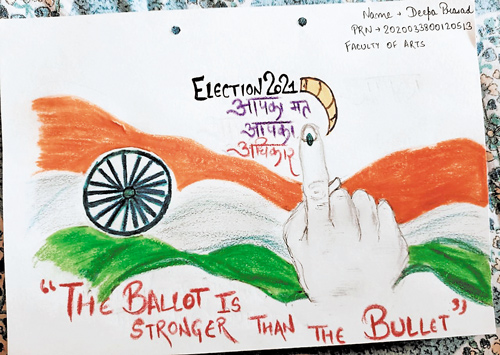 Name → Deepa Prasad
PRN → 2020033800120513
FACULTY OF ARTS
ELECTION'2021
आपका मत
आपका
अधिकार
"THE BALLOT IS
STRONGER THAN THE BULLET"